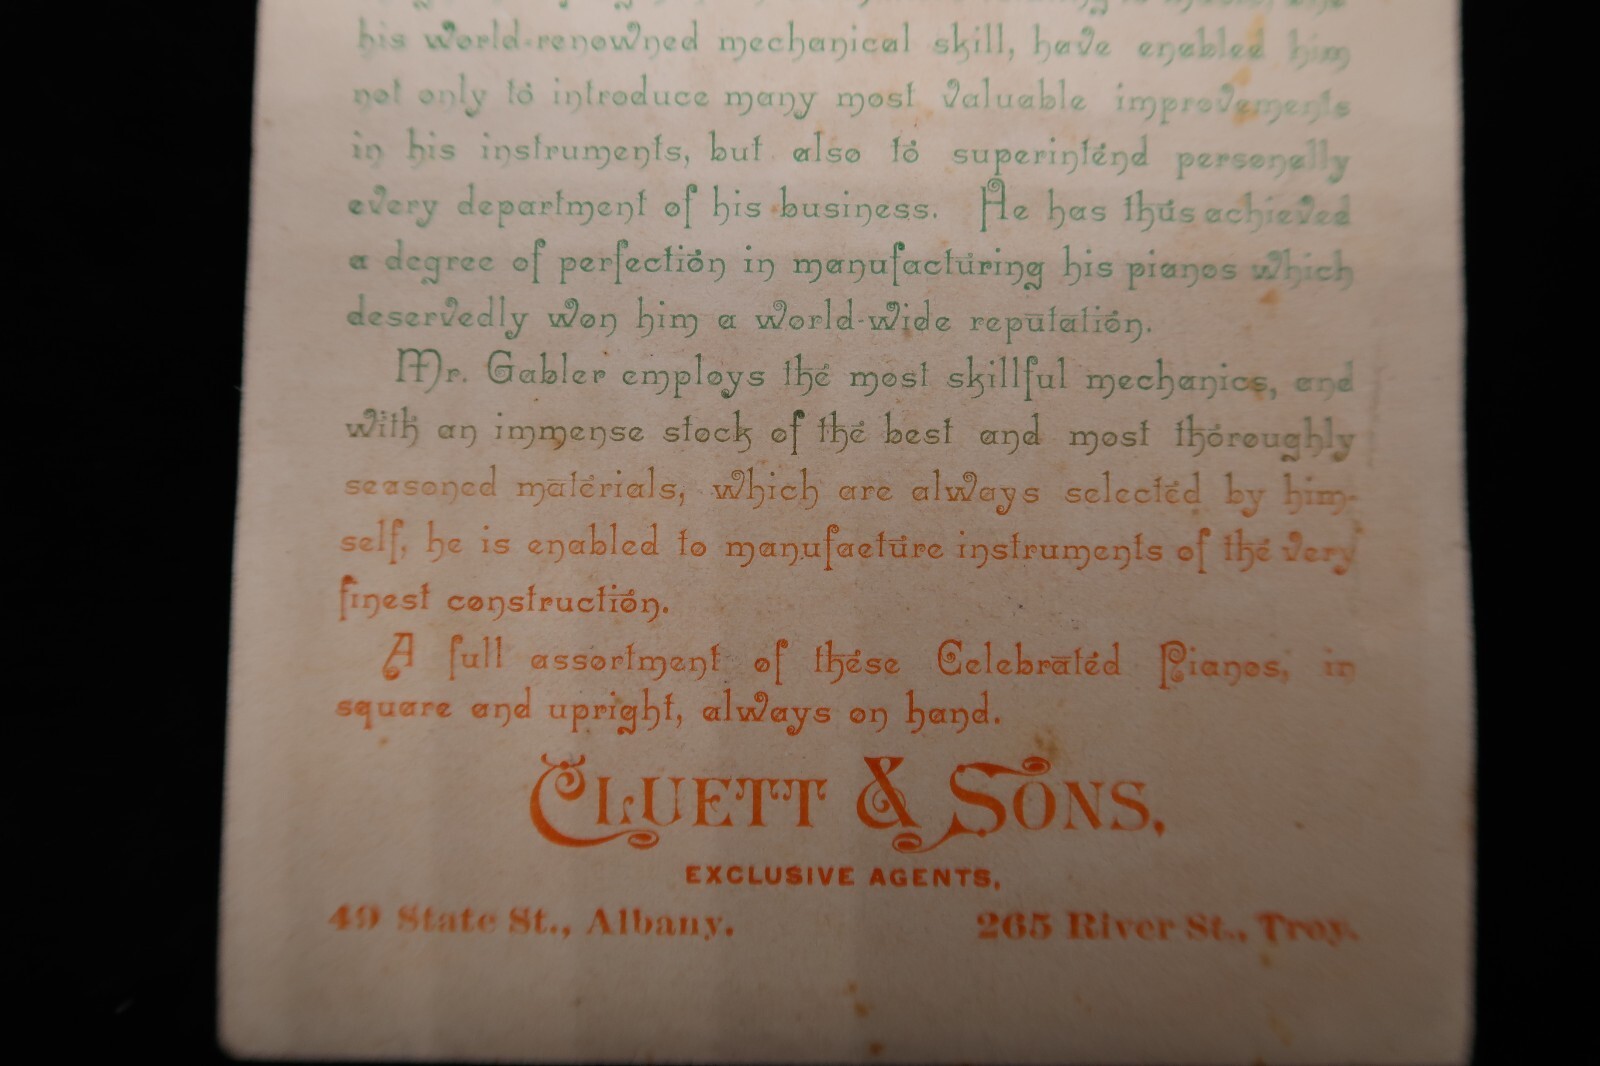 his world-renowned mechanical skill, have enabled him
not only to introduce many most valuable improvements
in his instruments, but also to superintend personally
every department of his business. He has thus achieved
a degree of perfection in manufacturing his pianos which
deservedly won him a world-wide reputation.
Mr. Gabler employs the most skillful mechanics, and
with an immense stock of the best and most thoroughly
seasoned materials, which are always selected by him-
self, he is enabled to manufacture instruments of the very
finest construction.
A full assortment of these Celebrated Pianos, in
square and upright, always on hand.
CLUETT & SONS,
EXCLUSIVE AGENTS,
49 State St., Albany. 265 River St., Troy.